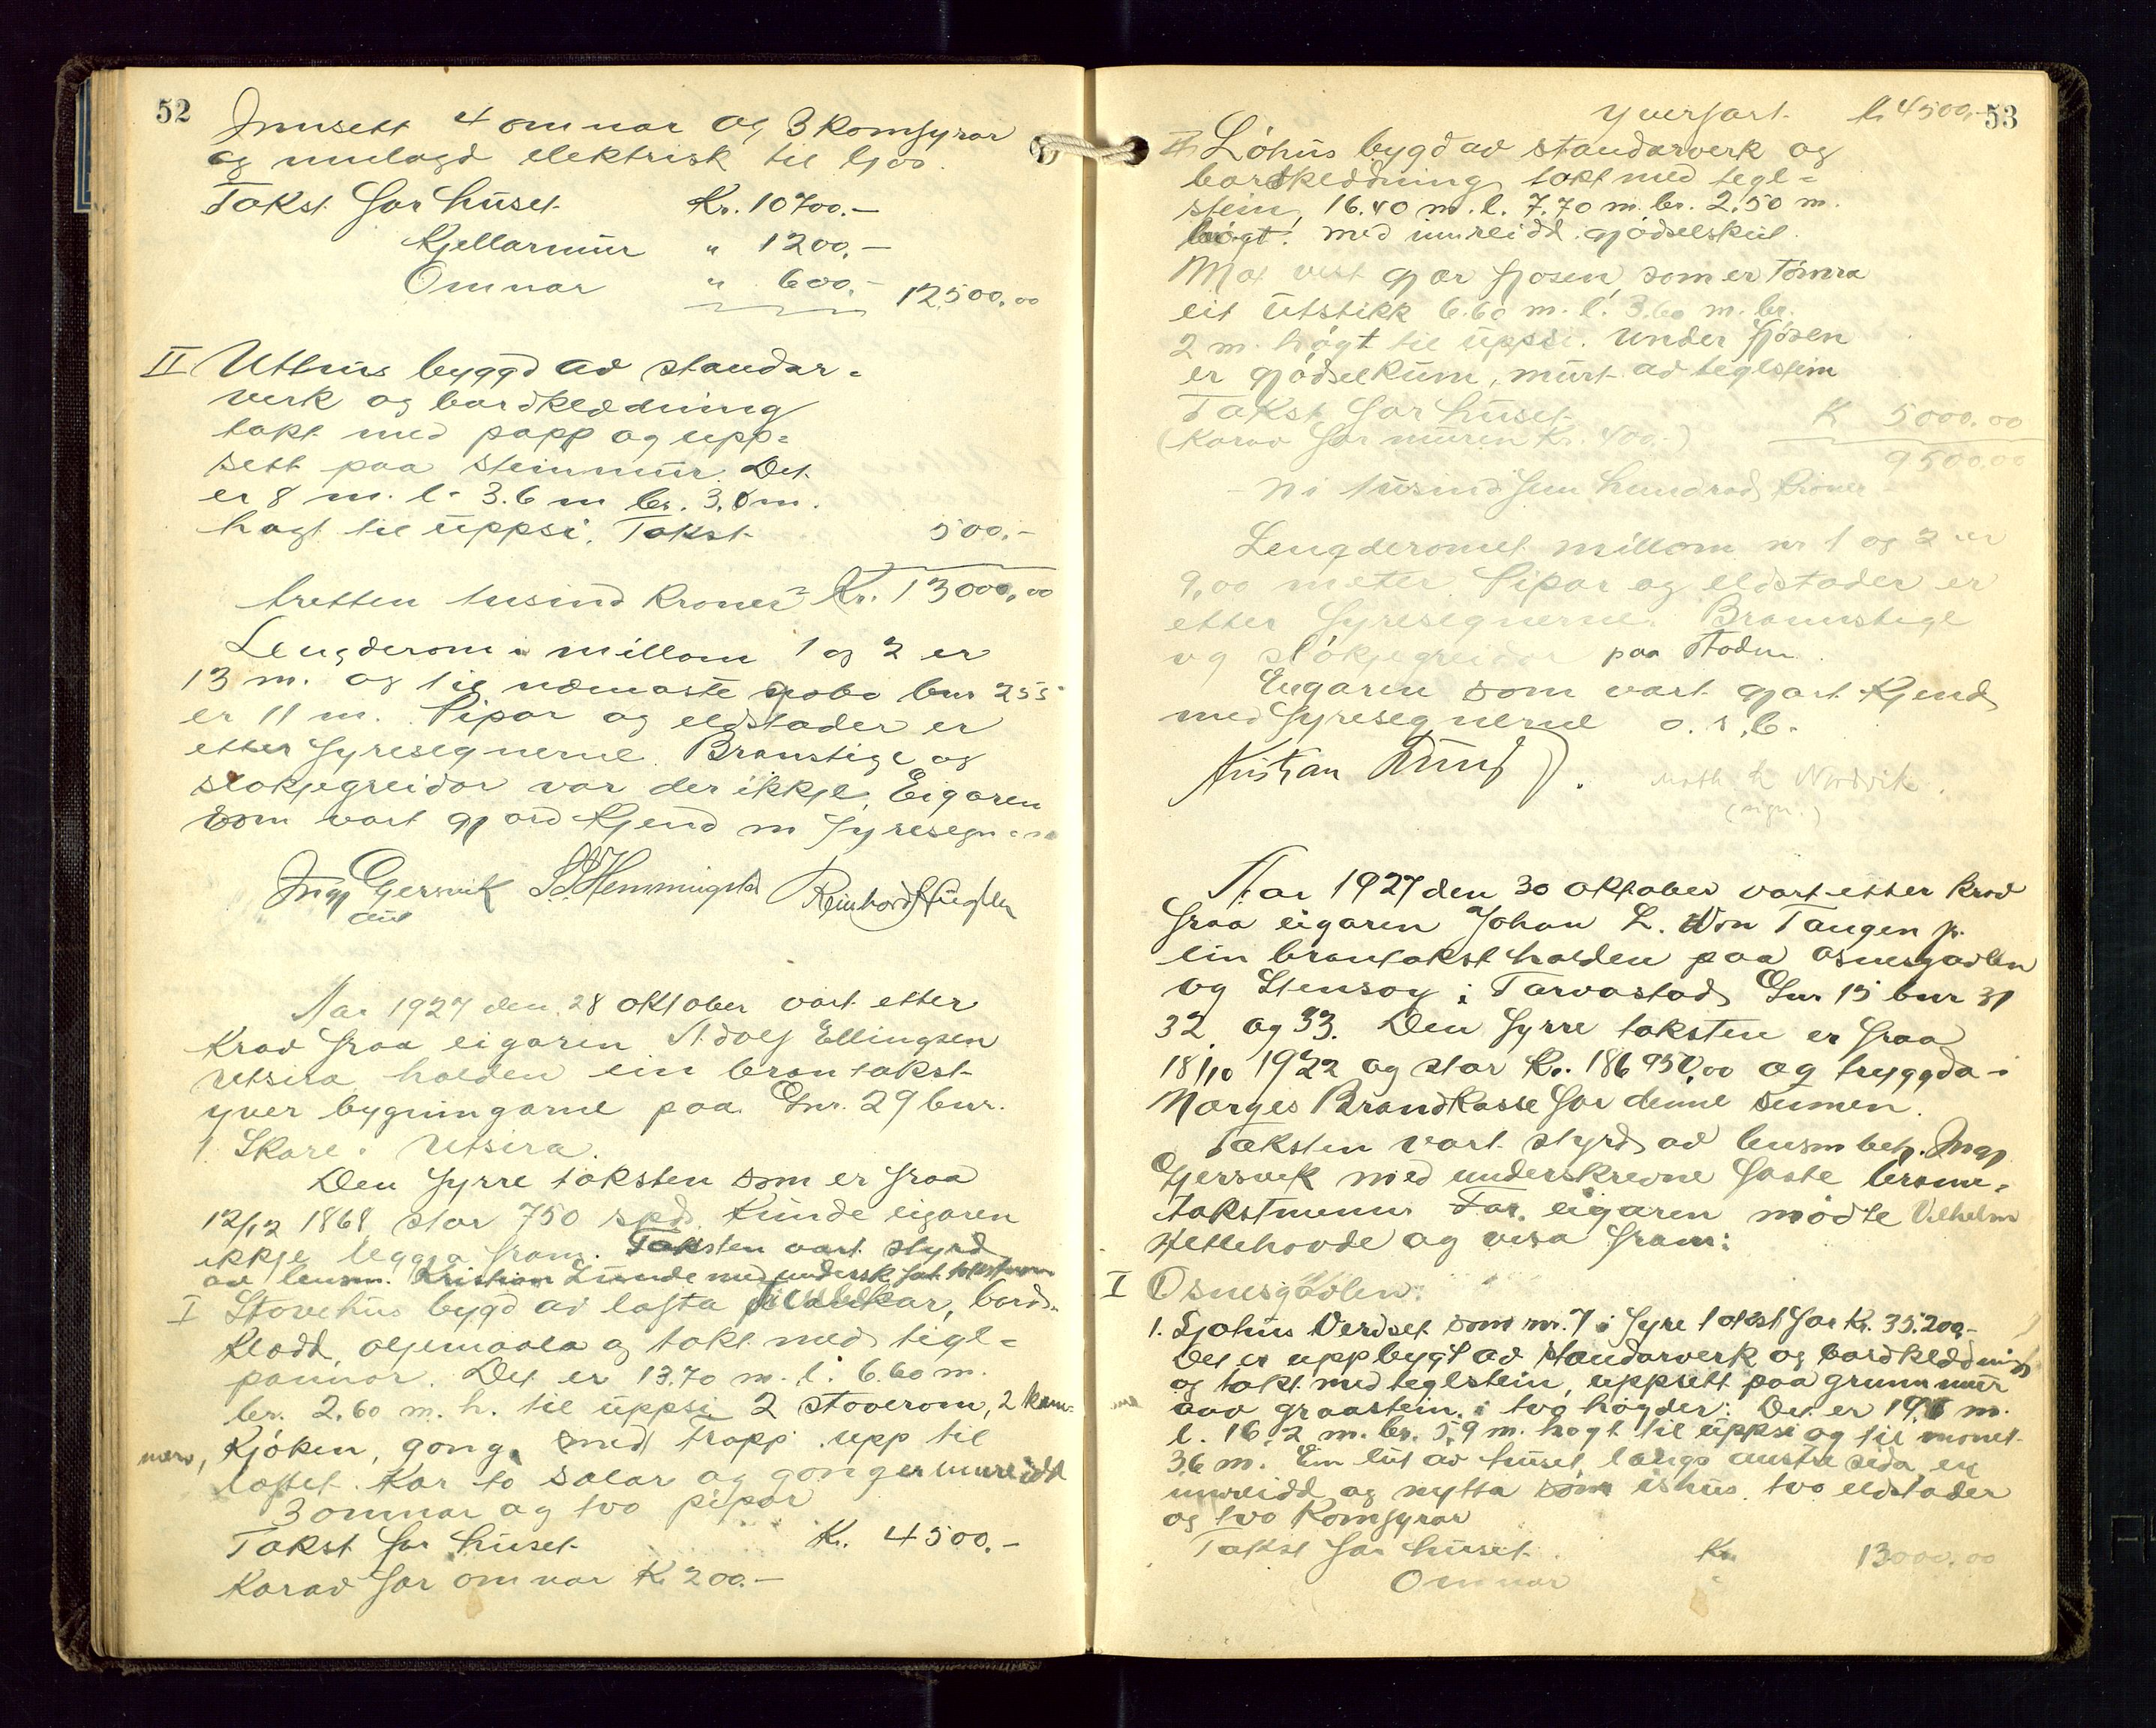 52
Innsett 4 omnar og 3 komfyrar
og innlagd elektrisk til ljos.
Takst for huset Kr. 10700.-
Kjellarmur " 1200.-
Omnar " 600.- 12500.00
II Uthus byggd av standar-
verk og bordkledning
takt med papp og upp-
sett paa steinmur. Det
er 8 m. l. 3.6 m br. 3.0 m.
høgt til uppsi. Takst 500.-
tretten tusind kroner Kr. 13000,00
Lengderom i millom 1 og 2 er
13 m. og til næmaste gobo bnr 255
er 11 m. Pipor og eldstader er
etter fyresegnerne. Branstige og
sløkjegreidor var der ikkje. Eigaren
som vart gjord kjend m fyresegn
Ingv Gjersvik S. S. Hemmingstad Reinhord Hugler
Aar 1927 den 28 oktober vart etter
Krav fraa eigaren Adolf Ellingsen
Utsira halden ein brantakst
yver bygningarne paa Gnr. 29 bnr.
1 Skare i Utsira.
Den fyrre taksten som er fraa
12/12 1868 stor 750 spd. kunde eigaren
ikkje leggja fram. Taksten vart styrd
av lensm. Kristian Lunde med undersk. fat. takstmenn
I Stovehus bygd av lafta plankar, bord-
kledd, oljemaala og takt med tigl-
pannor. Det er 13.70 m. l. 6.60 m.
br. 2.60 m. h. til uppsi 2 stoverom, 2 kam-
mers, Kjøken, gong, med trapp upp til
loftet. Kor to salar og gong er innreidd
3 omnar og tvo pipor
Takst for huset Kr. 4500.-
Korav for omnar Kr 200.-
53
yverført. Kr 4500.-
II Løhus bygd av standarverk og
bordkledning takt med tegl-
stein, 16.40 m. l. 7.70 m. br. 2.50 m.
høgt. med innreidd gjødselskut.
Mot vest gjør fjosen, som er tømra
eit utstikk 6.60 m. l. 3.60 m. br.
2 m. høgt til uppsi. Under fjøsen
er gjødselkum, murt av teglstein
Takst for huset K 5000.00
(Korav for muren Kr. 400.-) 9500.00
- Ni tusind fem hundrad kroner -
Lengderomet millom nr 1 og 2 er
9,00 meter. Pipor og eldstader er
etter fyresegnerne. Brannstige
og sløkjegreidor paa staden.
Eigaren som vart gjort kjend
med fyresegnerne o. s. b.
Kristian Lunde Math L Nordvik
(sign.)
Aar 1927 den 30 oktober vart etter krav
fraa eigaren Johan L. Von Tangen jr.
ein brantakst halden paa Osnesgavlen
og Stensøy i Tarvastad Gnr 15 bnr 31
32 og 33. Den fyrre taksten er fraa
18/10 1922 og stor Kr. 186950,00 og tryggda i
Norges Brandkasse for denne sumen.
Taksten vart styrd av lensm betj. Ingv
Gjersvik med underskrevne faste brann-
takstmenn. For eigaren mødte Vilhelm
Hettehovde og visa fram:
I Osnesgavlen:
1. Sjohus Verdset som nr. 7 i fyre takst for Kr. 35.200.-
Det er uppbygt av standarverk og bordkledning
og takt med teglstein, uppsett paa grunnmur
aav graastein, i tvo høgder. Det er 19,1 m.
l. 16.2 m. br. 5,9 m. høgt til uppsi og til mønet
3,6 m. Ein lut av huset langs austre sida er
innreidd og nytta som ishus. tvo eldstader
og tvo komfyrar
Takst for huset Kr. 13000.00
Omnar "